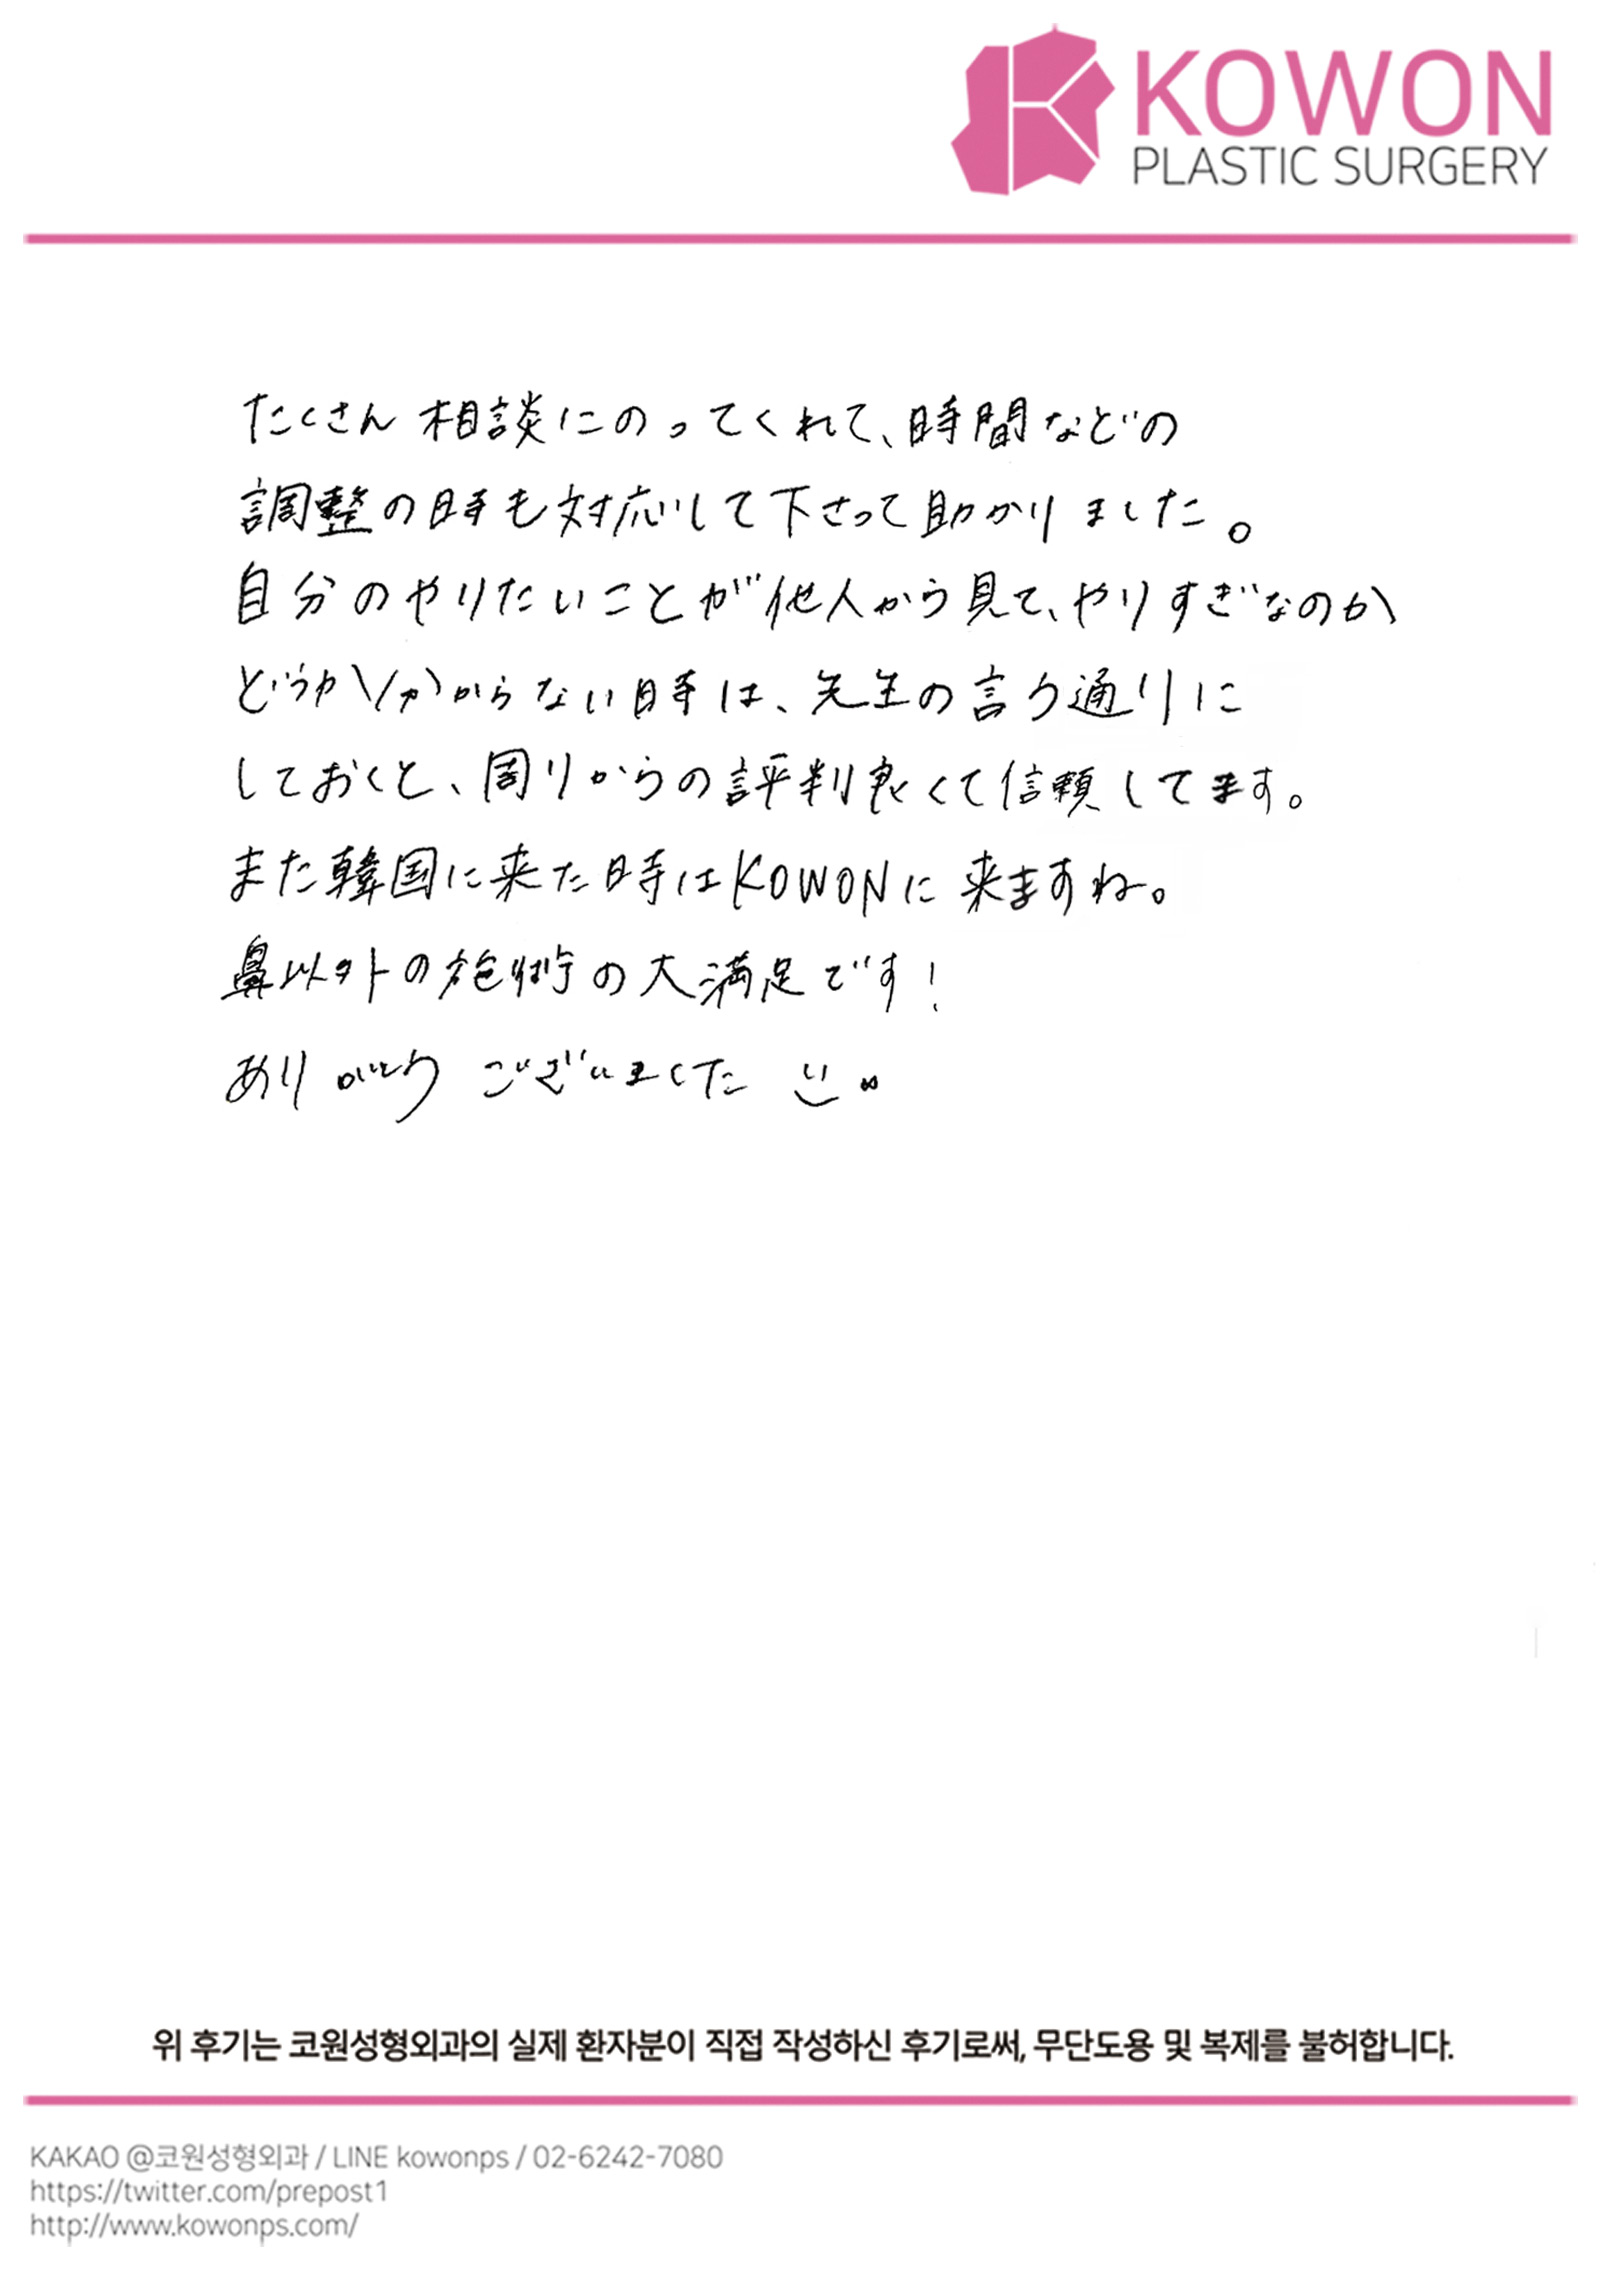 KOWON
PLASTIC SURGERY
たくさん相談にのってくれて、時間などの
調整の時も対応して下さって助かりました。
自分のやりたいことが他人から見て、やりすぎなのか
どうか分からない時は、先生の言う通りに
しておくと、周りからの評判良くて信頼してます。
また韓国に来た時はKOWONに来ますね。
鼻以外の施術の大満足です!
ありがとうございました
위 후기는 코원성형외과의 실제 환자분이 직접 작성하신 후기로써, 무단도용 및 복제를 불허합니다.
KAKAO @코원성형외과 / LINE kowonps / 02-6242-7080
https://twitter.com/prepost1
http://www.kowonps.com/